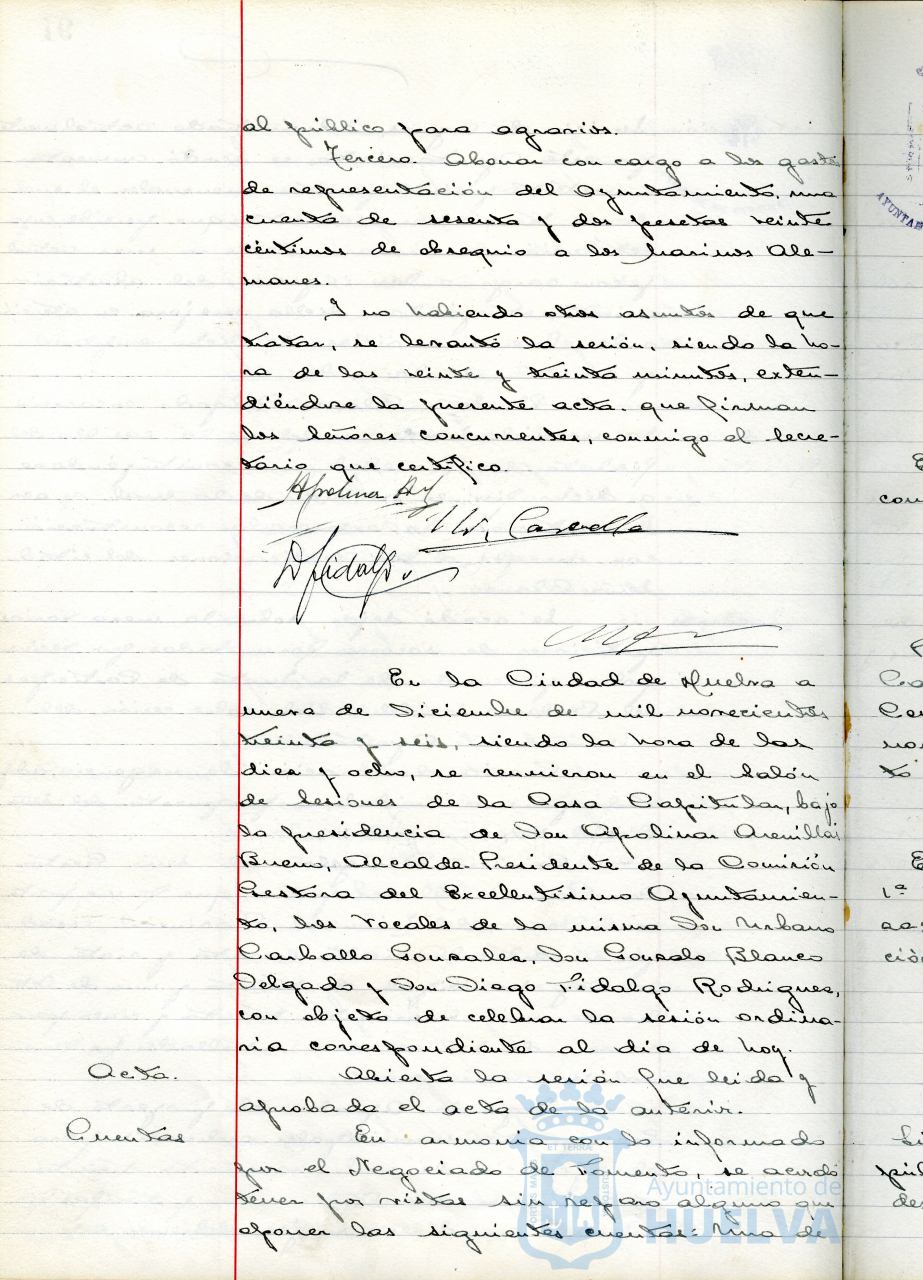 al público para agravios.
Tercero. Abonar con cargo a los gastos
de representación del Ayuntamiento, una
cuenta de sesenta y dos pesetas veinte
céntimos de obsequio a los Marinos Ale-
manes.
Y no habiendo otros asuntos de que
tratar, se levantó la sesión, siendo la ho-
ra de las veinte y treinta minutos, exten-
diéndose la presente acta que firman
los Señores concurrentes, conmigo el Secre-
tario que certifico.
Apolinar
U. Carvallo
D. Fidalgo
En la Ciudad de Huelva a
nueve de Diciembre de mil novecientos
treinta y seis, siendo la hora de las
diez y ocho, se reunieron en el Salón
de Sesiones de la Casa Capitular, bajo
la presidencia de Don Apolinar Arenillas
Bueno, Alcalde-Presidente de la Comisión
Gestora del Excelentísimo Ayuntamien-
to, los Vocales de la misma Don Urbano
Carballo Gonzalez, Don Gonzalo Blanco
Delgado y Don Diego Fidalgo Rodriguez,
con objeto de celebrar la sesión ordina-
ria correspondiente al día de hoy.
Acta. Abierta la sesión fue leida y
aprobada el acta de la anterior.
Cuentas En armonía con lo informado
por el Negociado de Fomento, se acordó
tener por vistas sin reparo alguno que
oponer las siguientes cuentas: Una de
Ayuntamiento de
HUELVA